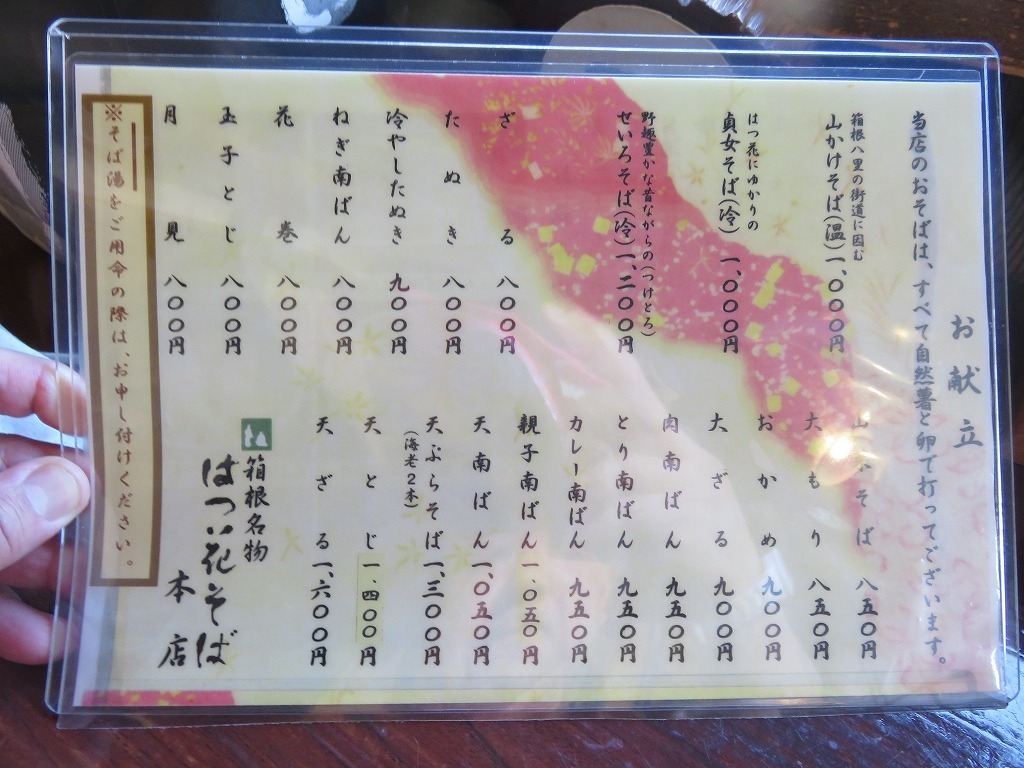 お献立
当店のおそばは、すべて自然薯と卵で打ってございます。
箱根八里の街道に因む
山かけそば(温)一、〇〇〇円
はつ花にゆかりの
貞女そば(冷)一、〇〇〇円
野趣豊かな昔ながらの(つけとろ)
せいろそば(冷)一、二〇〇円
ざる 八〇〇円
たぬき 八〇〇円
冷やしたぬき 九〇〇円
ねぎ南ばん 八〇〇円
花巻 八〇〇円
玉子とじ 八〇〇円
月見 八〇〇円
そば 八五〇円
大もり 八五〇円
おかめ 九〇〇円
大ざる 九〇〇円
肉南ばん 九五〇円
とり南ばん 九五〇円
カレー南ばん 九五〇円
親子南ばん 一、〇五〇円
天南ばん 一、〇五〇円
天ぷらそば 一、三〇〇円
(海老2本)
天とじ 一、四〇〇円
天ざる 一、六〇〇円
箱根名物
はつ花そば
本店
※そば湯をご用命の際は、お申し付けください。